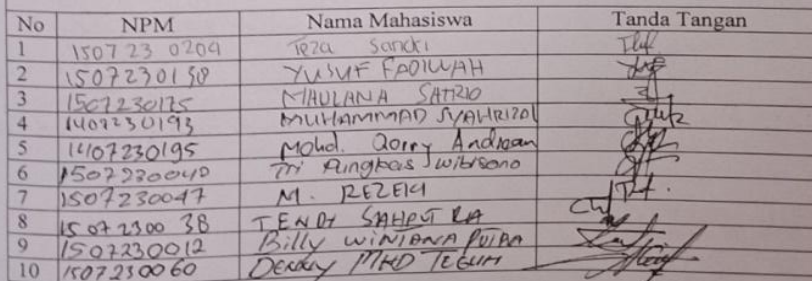 No NPM Nama Mahasiswa Tanda Tangan
1 1507 23 0204 Teza Sancki
2 1507230138 YUSUF FADILLAH
3 1507230175 MAULANA SATRIO
4 1407230193 MUHAMMAD SYAHRIZAL
5 14107230195 Mohd. Qorry Andrean
6 1507230040 Tri Pungkas wibisono
7 1507230047 M. REZEKI
8 15 07 2300 38 TENDI SAHPUTRA
9 1507230012 Billy WINTANA PUTRA
10 1507230060 Denny MHD TEGUH